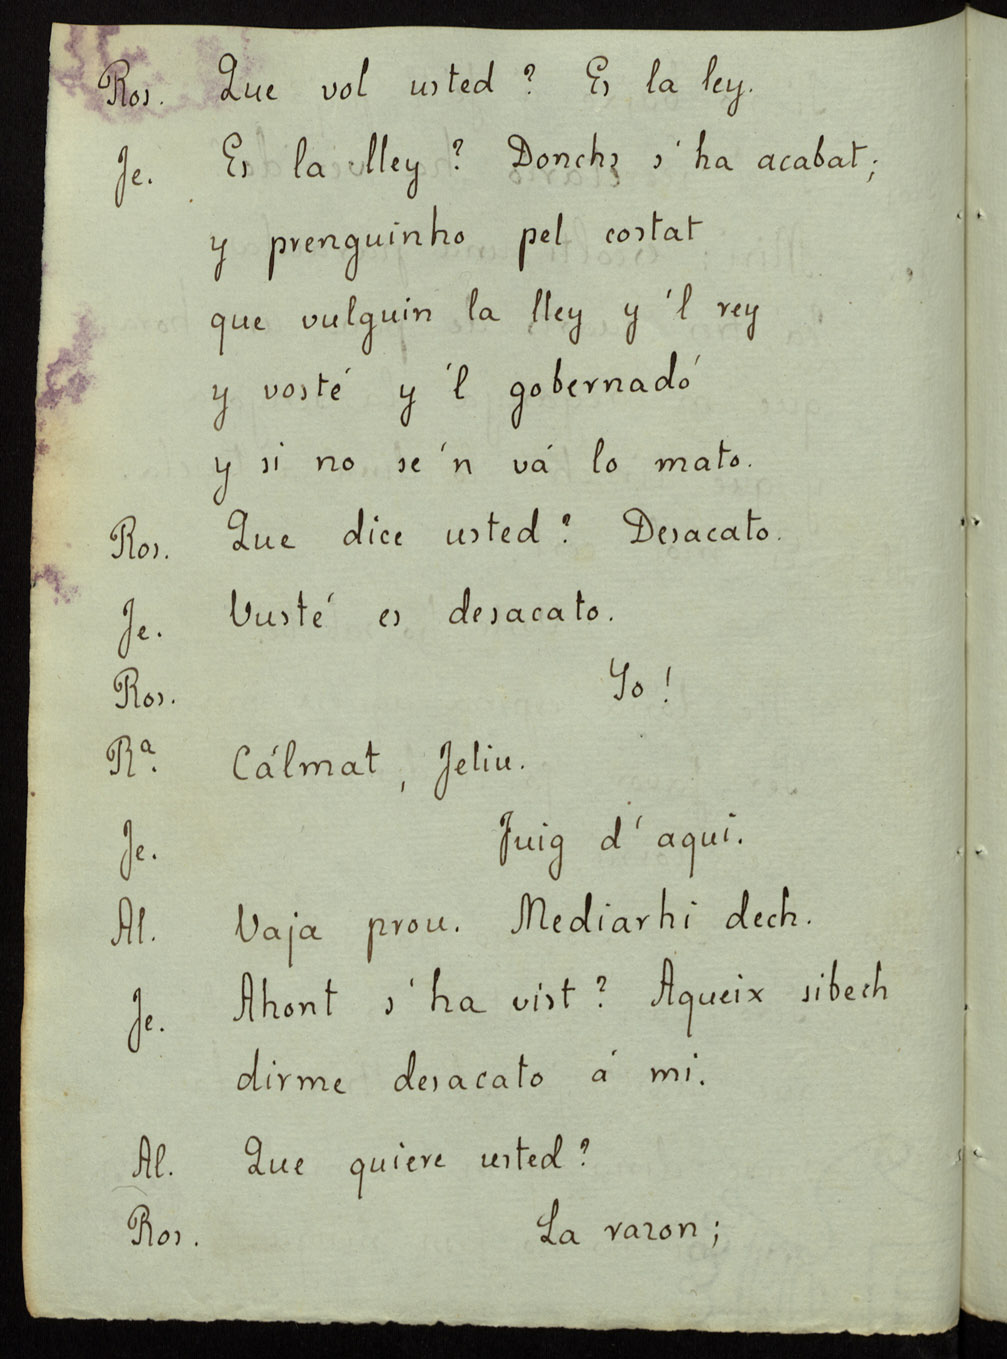 Ros. Que vol usted? Es la ley.
Je. Es la lley? Donchs s'ha acabat;
y prenguinho pel costat
que vulguin la lley y 'l rey
y vosté y 'l gobernadó
y si no se 'n vá lo mato.
Ros. Que dice usted? Desacato.
Je. Vusté es desacato.
Ros. Yo!
Rª. Cálmat, Jeliu.
Je. Fuig d'aqui.
Al. Vaja prou. Mediarhi dech.
Je. Ahont s'ha vist? Aqueix sibech
dirme desacato á mi.
Al. Que quiere usted?
Ros. La razon;